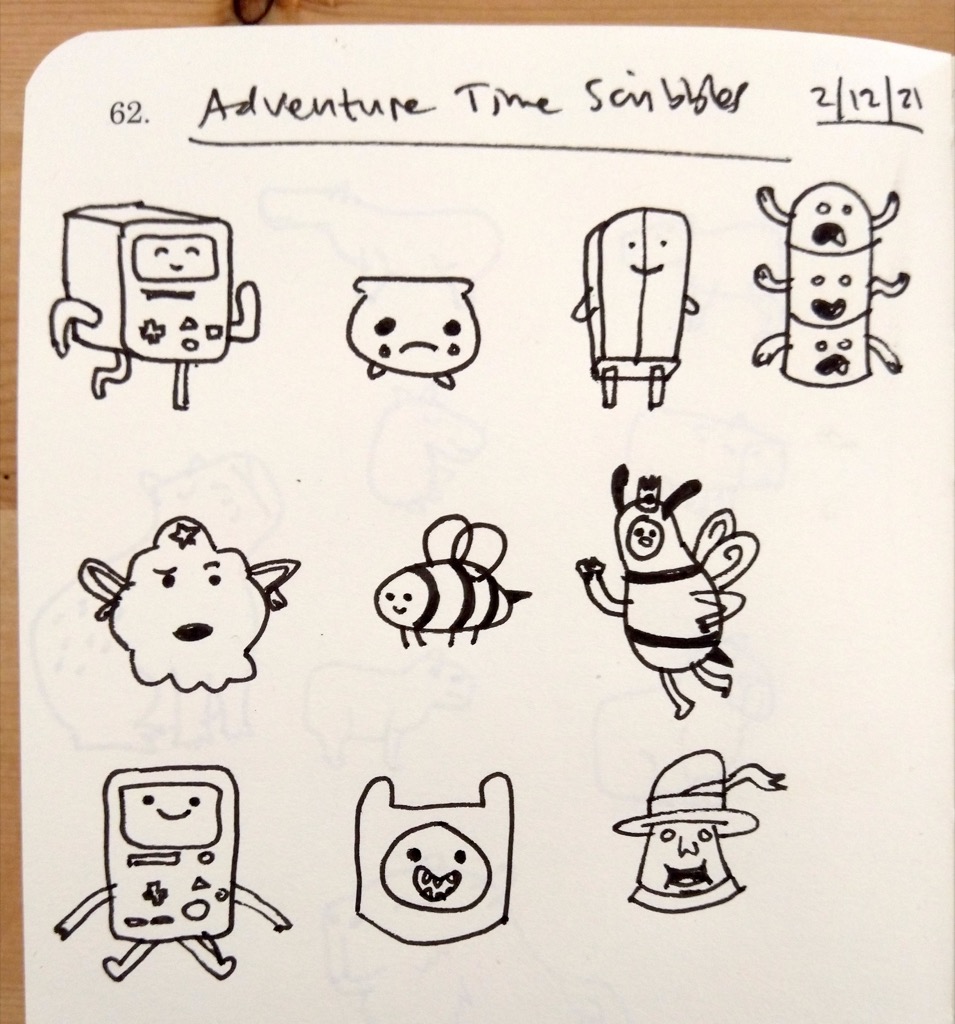 62. Adventure Time Scribbles 2/12/21